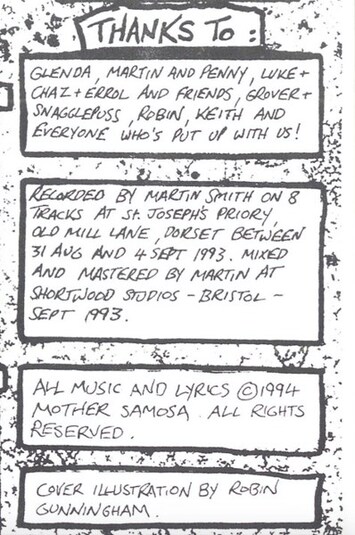 THANKS TO :
GLENDA, MARTIN AND PENNY, LUKE +
CHAZ + ERROL AND FRIENDS, GROVER +
SNAGGLEPUSS, ROBIN, KEITH AND
EVERYONE WHO'S PUT UP WITH US!
RECORDED BY MARTIN SMITH ON 8
TRACKS AT St. JOSEPH'S PRIORY,
OLD MILL LANE, DORSET BETWEEN
31 AUG AND 4 SEPT 1993. MIXED
AND MASTERED BY MARTIN AT
SHORTWOOD STUDIOS - BRISTOL -
SEPT 1993.
ALL MUSIC AND LYRICS ©1994
MOTHER SAMOSA. ALL RIGHTS
RESERVED.
COVER ILLUSTRATION BY ROBIN
GUNNINGHAM.